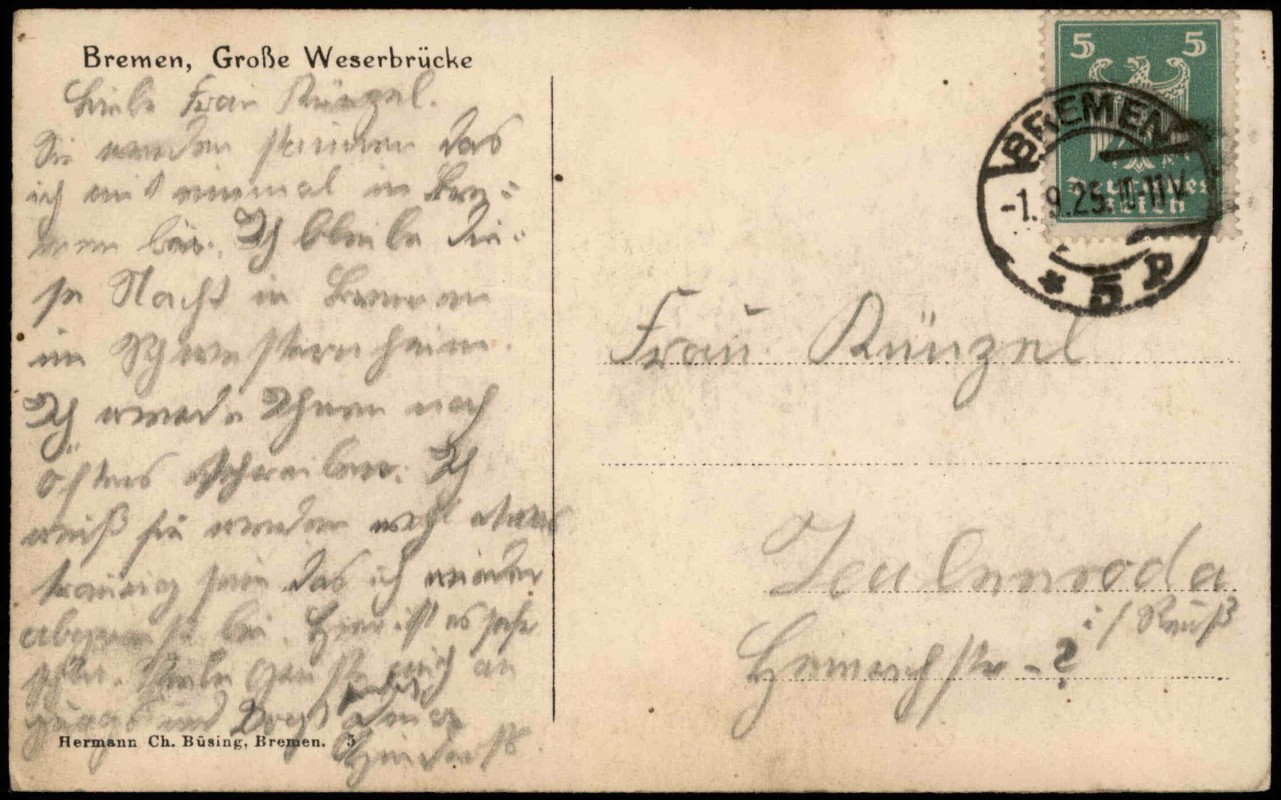 Bremen, Große Weserbrücke
Liebe Frau Künzel.
Sie werden staunen das
ich mit einmal in Bre-
men bin. Ich bleibe die-
se Nacht in Bremen
im Schwesternheim.
Ich werde Ihnen noch
öfters schreiben. Ich
weiß sie werden wohl etwas
traurig sein das ich wieder
abgereist bin. Hier ist es sehr
schön. Viele Grüße auch an
und
Hermann Ch. Büsing, Bremen. 5
5 5
Deutsches
Reich
BREMEN
-1.9.25.10-11V
* 5 p
Frau Künzel
Zeulenroda
i/ Reuß